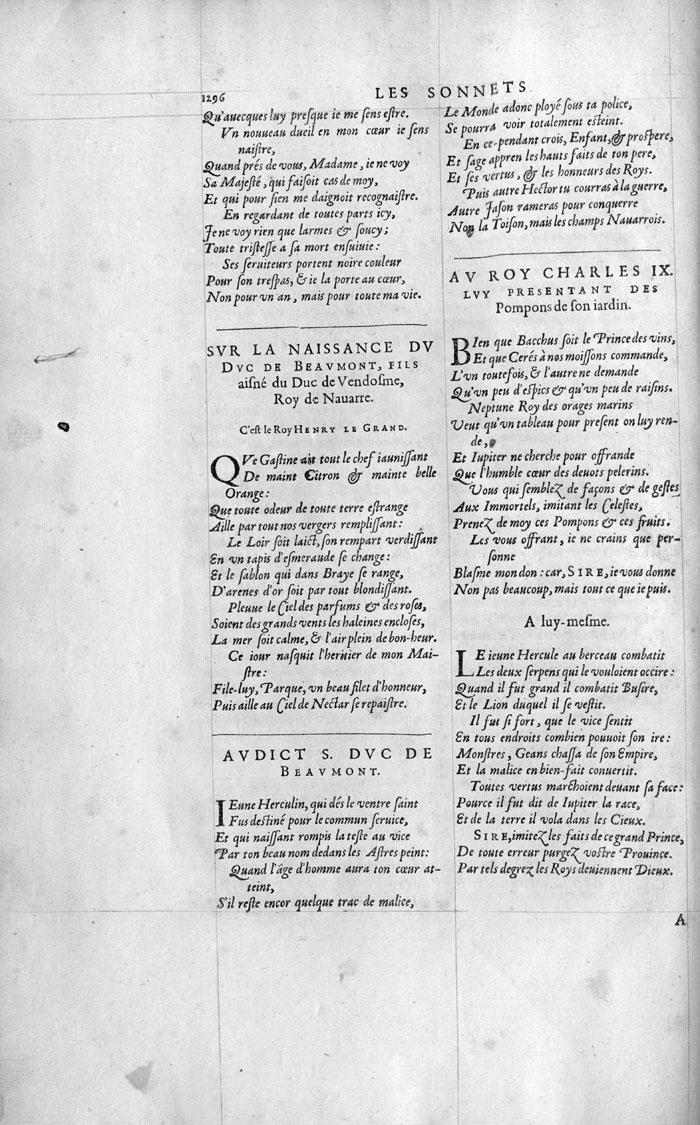 1296
LES SONNETS
Qu'auecques luy presque ie me sens estre.
Vn nouueau dueil en mon cœur ie sens
naistre,
Quand prés de vous, Madame, ie ne voy
Sa Majesté, qui faisoit cas de moy,
Et qui pour sien me daignoit recognaistre.
En regardant de toutes parts icy,
Je ne voy rien que larmes & soucy;
Toute tristesse a sa mort ensuiuie:
Ses seruiteurs portent noire couleur
Pour son trespas, & ie la porte au cœur,
Non pour vn an, mais pour toute ma vie.
SVR LA NAISSANCE DV
DVC DE BEAVMONT, FILS
aisné du Duc de Vendosme,
Roy de Nauarre.
C'est le Roy HENRY LE GRAND.
QVe Gastine ait tout le chef iaunissant
De maint Citron & mainte belle
Orange:
Que toute odeur de toute terre estrange
Aille par tout nos vergers remplissant:
Le Loir soit laict, son rempart verdissant
En vn tapis d'esmeraude se change:
Et le sablon qui dans Braye se range,
D'arenes d'or soit par tout blondissant.
Pleuue le Ciel des parfums & des roses,
Soient des grands vents les haleines encloses,
La mer soit calme, & l'air plein de bon-heur.
Ce iour nasquit l'heritier de mon Mai-
stre:
File-luy, Parque, vn beau filet d'honneur,
Puis aille au Ciel de Nectar se repaistre.
AVDICT S. DVC DE
BEAVMONT.
IEune Herculin, qui dés le ventre saint
Fus destiné pour le commun seruice,
Et qui naissant rompis la teste au vice
Par ton beau nom dedans les Astres peint:
Quand l'âge d'homme aura ton cœur at-
teint,
S'il reste encor quelque trac de malice,
Le Monde adonc ployé sous ta police,
Se pourra voir totalement esteint.
En ce-pendant crois, Enfant, & prospere,
Et sage appren les hauts faits de ton pere,
Et ses vertus, & les honneurs des Roys.
Puis autre Hector tu courras à la guerre,
Autre Jason rameras pour conquerre
Non la Toison, mais les champs Nauarrois.
AV ROY CHARLES IX.
LVY PRESENTANT DES
Pompons de son iardin.
BIen que Bacchus soit le Prince des vins,
Et que Cerés à nos moissons commande,
L'vn toutefois, & l'autre ne demande
Qu'vn peu d'espics & qu'vn peu de raisins.
Neptune Roy des orages marins
Veut qu'vn tableau pour present on luy ren-
de,
Et Iupiter ne cherche pour offrande
Que l'humble cœur des deuots pelerins.
Vous qui semblez de façons & de gestes
Aux Immortels, imitant les Celestes,
Prenez de moy ces Pompons & ces fruits.
Les vous offrant, ie ne crains que per-
sonne
Blasme mon don: car, SIRE, ie vous donne
Non pas beaucoup, mais tout ce que ie puis.
A luy-mesme.
LE ieune Hercule au berceau combatit
Les deux serpens qui le vouloient occire:
Quand il fut grand il combatit Busire,
Et le Lion duquel il se vestit.
Il fut si fort, que le vice sentit
En tous endroits combien pouuoit son ire:
Monstres, Geans chassa de son Empire,
Et la malice en bien-fait conuertit.
Toutes vertus marchoient deuant sa face:
Pource il fut dit de Iupiter la race,
Et de la terre il vola dans les Cieux.
SIRE, imitez les faits de ce grand Prince,
De toute erreur purgez vostre Prouince.
Par tels degrez les Roys deuiennent Dieux.
A